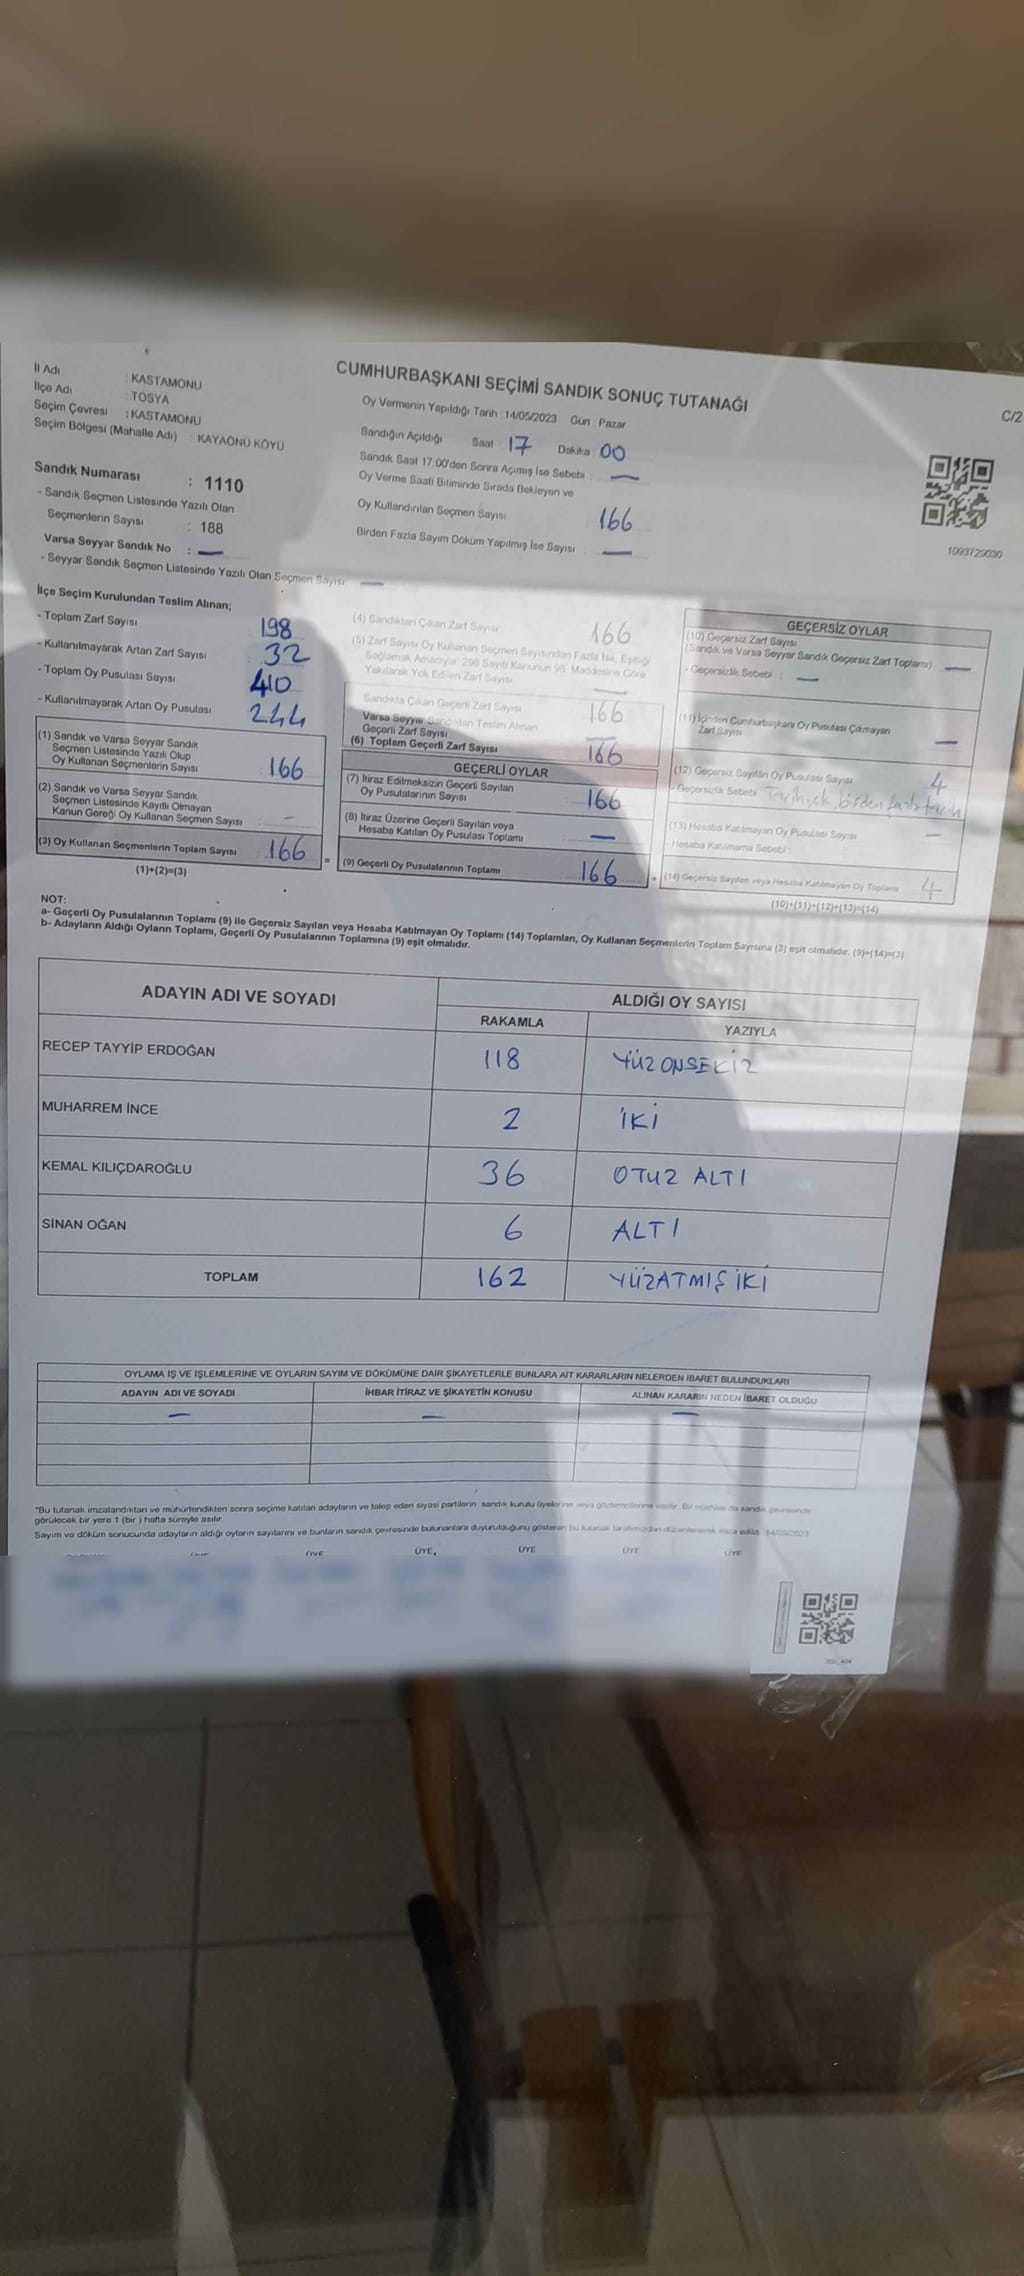 CUMHURBAŞKANI SEÇİMİ SANDIK SONUÇ TUTANAĞI
C/2
İl Adı : KASTAMONU
İlçe Adı : TOSYA
Seçim Çevresi : KASTAMONU
Seçim Bölgesi (Mahalle Adı) : KAYAÖNÜ KÖYÜ
Sandık Numarası : 1110
- Sandık Seçmen Listesinde Yazılı Olan
Seçmenlerin Sayısı : 188
Varsa Seyyar Sandık No : —
- Seyyar Sandık Seçmen Listesinde Yazılı Olan Seçmen Sayısı: —
Oy Vermenin Yapıldığı Tarih : 14/05/2023 Gün : Pazar
Sandığın Açıldığı Saat : 17 Dakika : 00
Sandık Saat 17:00'den Sonra Açımış İse Sebebi : —
Oy Verme Saati Bitiminde Sırada Bekleyen ve
Oy Kullandırılan Seçmen Sayısı : 166
Birden Fazla Sayım Döküm Yapılmış İse Sayısı : —
1093729030
İlçe Seçim Kurulundan Teslim Alınan;
- Toplam Zarf Sayısı : 198
- Kullanılmayarak Artan Zarf Sayısı : 32
- Toplam Oy Pusulası Sayısı : 410
- Kullanılmayarak Artan Oy Pusulası : 244
(1) Sandık ve Varsa Seyyar Sandık
Seçmen Listesinde Yazılı Olup
Oy Kullanan Seçmenlerin Sayısı : 166
(2) Sandık ve Varsa Seyyar Sandık
Seçmen Listesinde Kayıtlı Olmayan
Kanun Gereği Oy Kullanan Seçmen Sayısı : -
(3) Oy Kullanan Seçmenlerin Toplam Sayısı : 166
(1)+(2)=(3)
(4) Sandıktan Çıkan Zarf Sayısı : 166
(5) Zarf Sayısı Oy Kullanan Seçmen Sayısından Fazla İse, Eşitliği
Sağlamak Amacıyla; 298 Sayılı Kanunun 98. Maddesine Göre
Yakılarak Yok Edilen Zarf Sayısı : —
Sandıkta Çıkan Geçerli Zarf Sayısı : 166
Varsa Seyyar Sandıktan Teslim Alınan
Geçerli Zarf Sayısı : —
(6) Toplam Geçerli Zarf Sayısı : 166
GEÇERLİ OYLAR
(7) İtiraz Edilmeksizin Geçerli Sayılan
Oy Pusulalarının Sayısı : 166
(8) İtiraz Üzerine Geçerli Sayılan veya
Hesaba Katılan Oy Pusulası Toplamı : —
(9) Geçerli Oy Pusulalarının Toplamı : 166
GEÇERSİZ OYLAR
(10) Geçersiz Zarf Sayısı
(Sandık ve Varsa Seyyar Sandık Geçersiz Zarf Toplamı) : —
- Geçersizlik Sebebi : —
(11) İçinden Cumhurbaşkanı Oy Pusulası Çıkmayan
Zarf Sayısı : —
(12) Geçersiz Sayılan Oy Pusulası Sayısı : 4
- Geçersizlik Sebebi : Tercih yok, birden fazla tercih
(13) Hesaba Katılmayan Oy Pusulası Sayısı : —
- Hesaba Katılmama Sebebi :
(14) Geçersiz Sayılan veya Hesaba Katılmayan Oy Toplamı : 4
(10)+(11)+(12)+(13)=(14)
NOT:
a- Geçerli Oy Pusulalarının Toplamı (9) ile Geçersiz Sayılan veya Hesaba Katılmayan Oy Toplamı (14) Toplamları, Oy Kullanan Seçmenlerin Toplam Sayısına (3) eşit olmalıdır. (9)+(14)=(3)
b- Adayların Aldığı Oyların Toplamı, Geçerli Oy Pusulalarının Toplamına (9) eşit olmalıdır.
ADAYIN ADI VE SOYADI ALDIĞI OY SAYISI
RAKAMLA YAZIYLA
RECEP TAYYİP ERDOĞAN 118 YÜZ ONSEKİZ
MUHARREM İNCE 2 İKİ
KEMAL KILIÇDAROĞLU 36 OTUZ ALTI
SİNAN OĞAN 6 ALTI
TOPLAM 162 YÜZATMIŞ İKİ
OYLAMA İŞ VE İŞLEMLERİNE VE OYLARIN SAYIM VE DÖKÜMÜNE DAİR ŞİKAYETLERLE BUNLARA AİT KARARLARIN NELERDEN İBARET BULUNDUKLARI
ADAYIN ADI VE SOYADI İHBAR İTİRAZ VE ŞİKAYETİN KONUSU ALINAN KARARIN NEDEN İBARET OLDUĞU
— — —
*Bu tutanak imzalandıktan ve mühürlendikten sonra seçime katılan adayların ve talep eden siyasi partilerin sandık kurulu üyelerine veya gözlemcilerine verilir. Bir nüshası da sandık çevresinde
görülecek bir yere 1 (bir) hafta süreyle asılır.
Sayım ve döküm sonucunda adayların aldığı oyların sayılarını ve bunların sandık çevresinde bulunanlara duyurulduğunu gösteren bu tutanak tarafımızdan düzenlenerek imza edildi. 14/05/2023
ÜYE ÜYE ÜYE, ÜYE ÜYE ÜYE